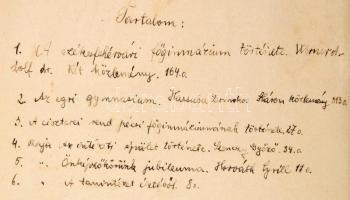 Tartalom:
1. A székesfehérvári főgimnázium története. Werner A-
dolf dr. Két közlemény. 164.o
2. Az egri gymnasium. Kassuba Domokos Három közlemény
3. A ciszterci rend pécsi főgimnáziumának története. 27.o.
4. Rajz az intézeti épület története. Győző. 34.o
5. " Önképzőkörünk jubileuma. Horváth Cyrill 11 o.
6. " A tanintézet